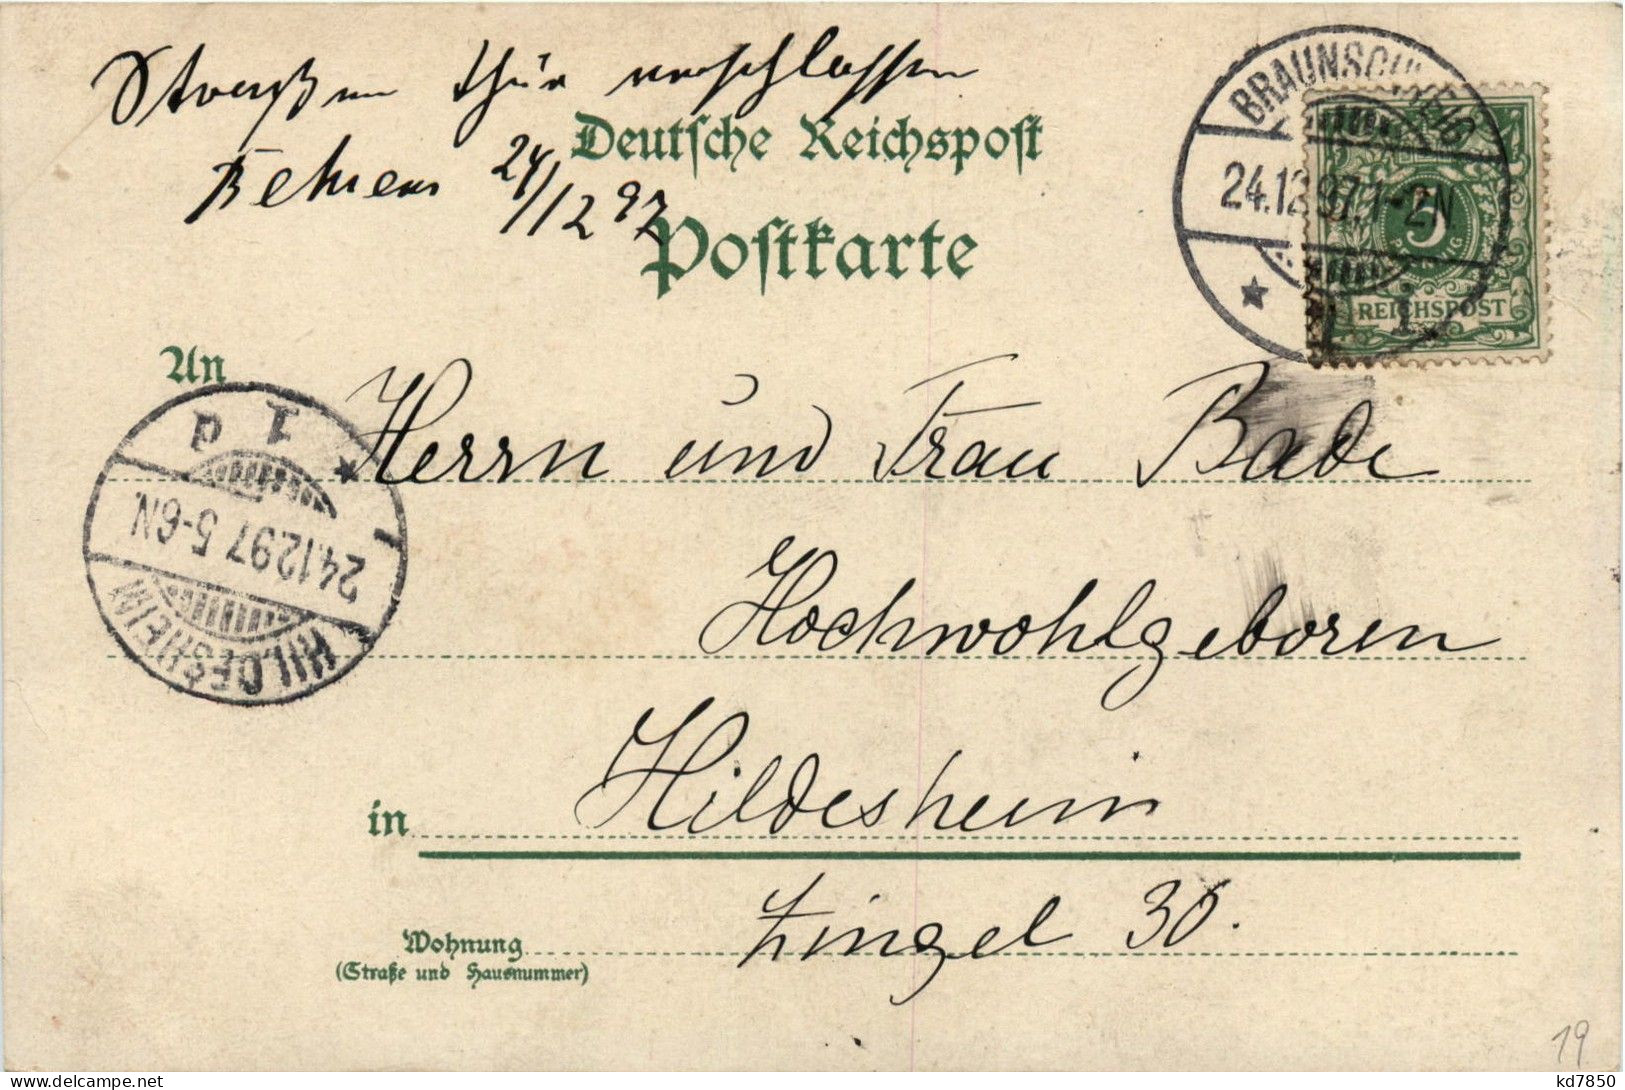 Straßen thür verschlossen
Behrens 24/12 97
Deutsche Reichspost
Postkarte
BRAUNSCHWEIG
24.12.97.1-2N
1
5
PFENNIG
REICHSPOST
An
Herrn und Frau Bade
Hochwohlgeboren
in Hildesheim
Wohnung Zingel 30.
(Straße und Hausnummer)
HILDESHEIM
24.12.97 5-6N.
1 d
19
kd7850